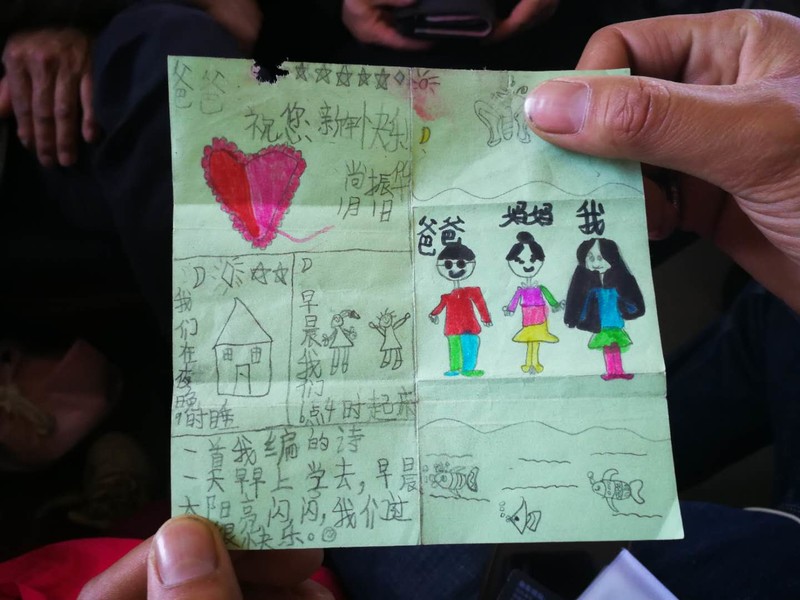 爸爸
祝您新年快乐
尚振华
1月1日
爸爸
妈妈
我
我们在夜晚
9时睡
早晨我们
6点4时起来
一首我编的诗
一天早上学去,早晨
太阳亮闪闪,我们过
很快乐。